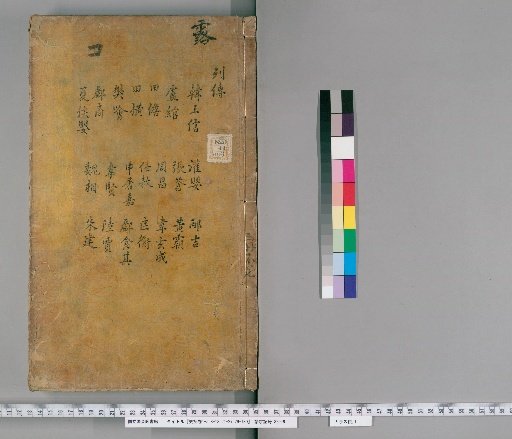 露
コ
列傳
韓王信 灌嬰 邴吉
盧綰 張蒼 黃霸
田儋 周昌 韋玄成
田橫 任敖 匡衡
樊噲 申屠嘉 酈食其
酈商 韋賢 陸賈
夏侯嬰 魏相 朱建